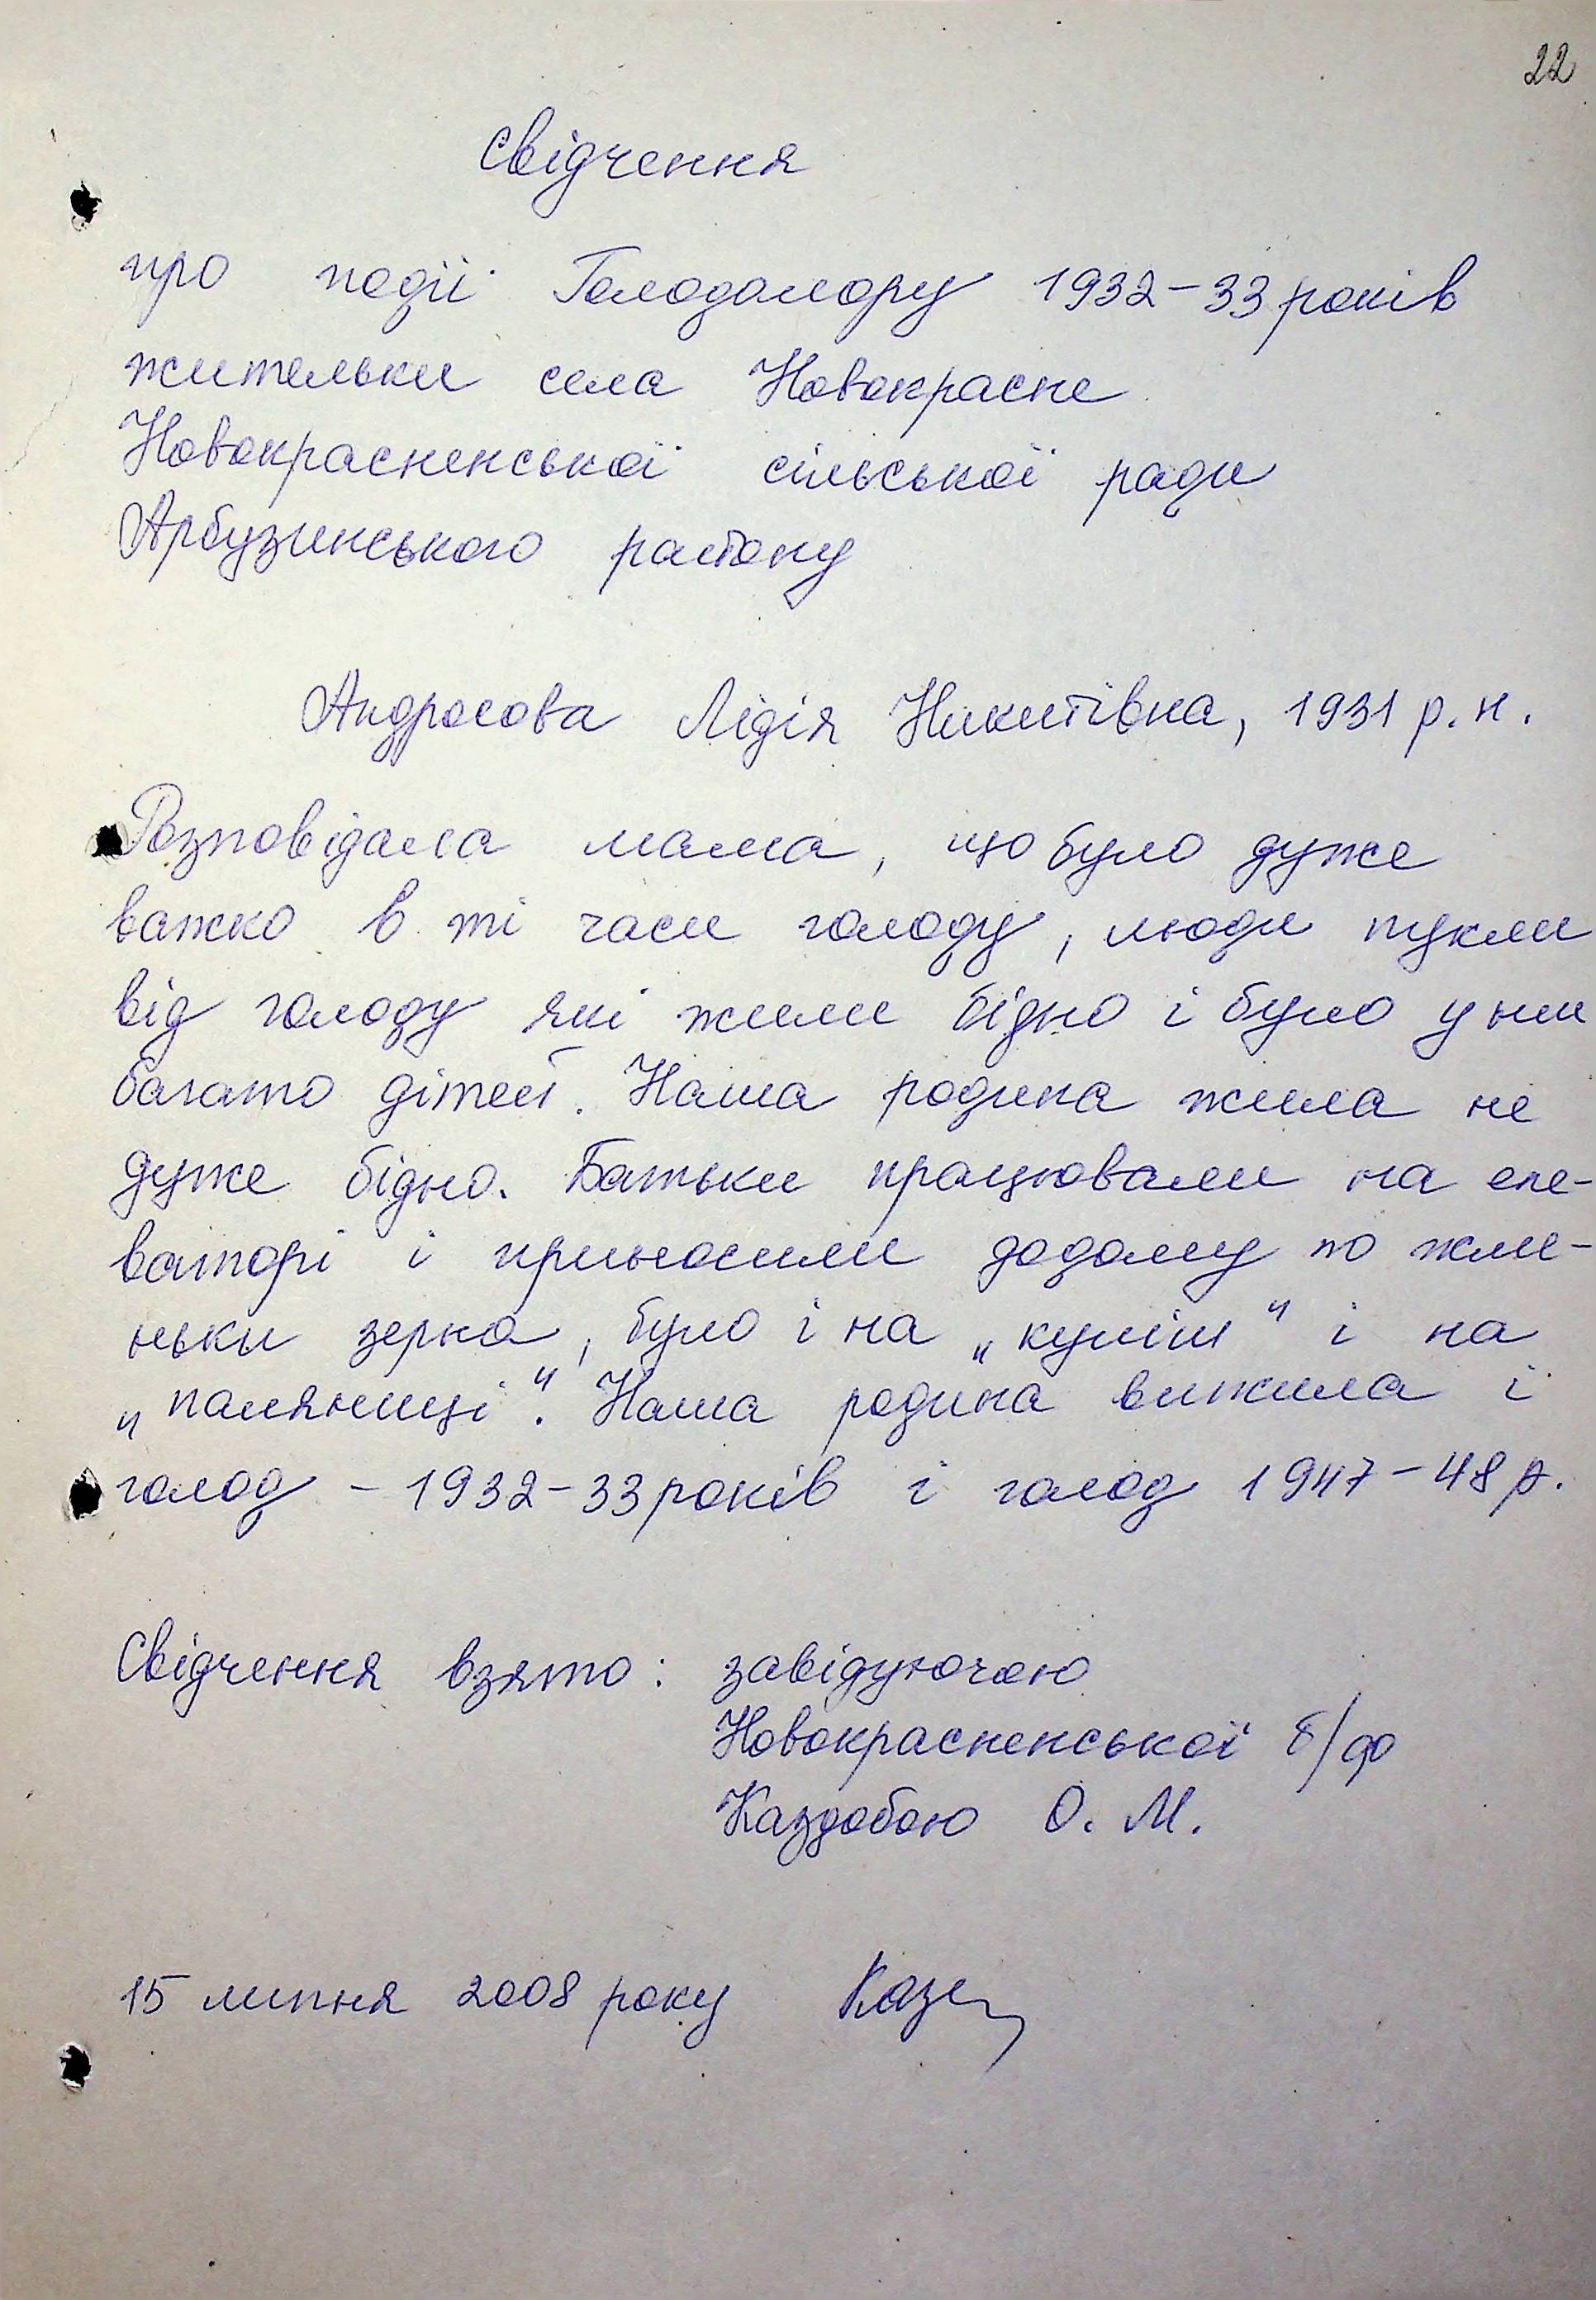 22
Свідчення
про події Голодомору 1932-33 років
жительки села Новокрасне
Новокрасненської сільської ради
Арбузинського району
Андросова Лідія Никитівна, 1931 р. н.
Розповідала мама, що було дуже
важко в ті часи голоду, люди пухли
від голоду які жили бідно і було у них
багато дітей. Наша родина жила не
дуже бідно. Батьки працювали на еле-
ваторі і приносили додому по жме-
ньки зерна, було і на „куліш" і на
„паляниці". Наша родина вижила і
голод - 1932-33 років і голод 1947-48 р.
Свідчення взято: завідуючою
Новокрасненської б/ф
Каздобою О. М.
15 липня 2008 року